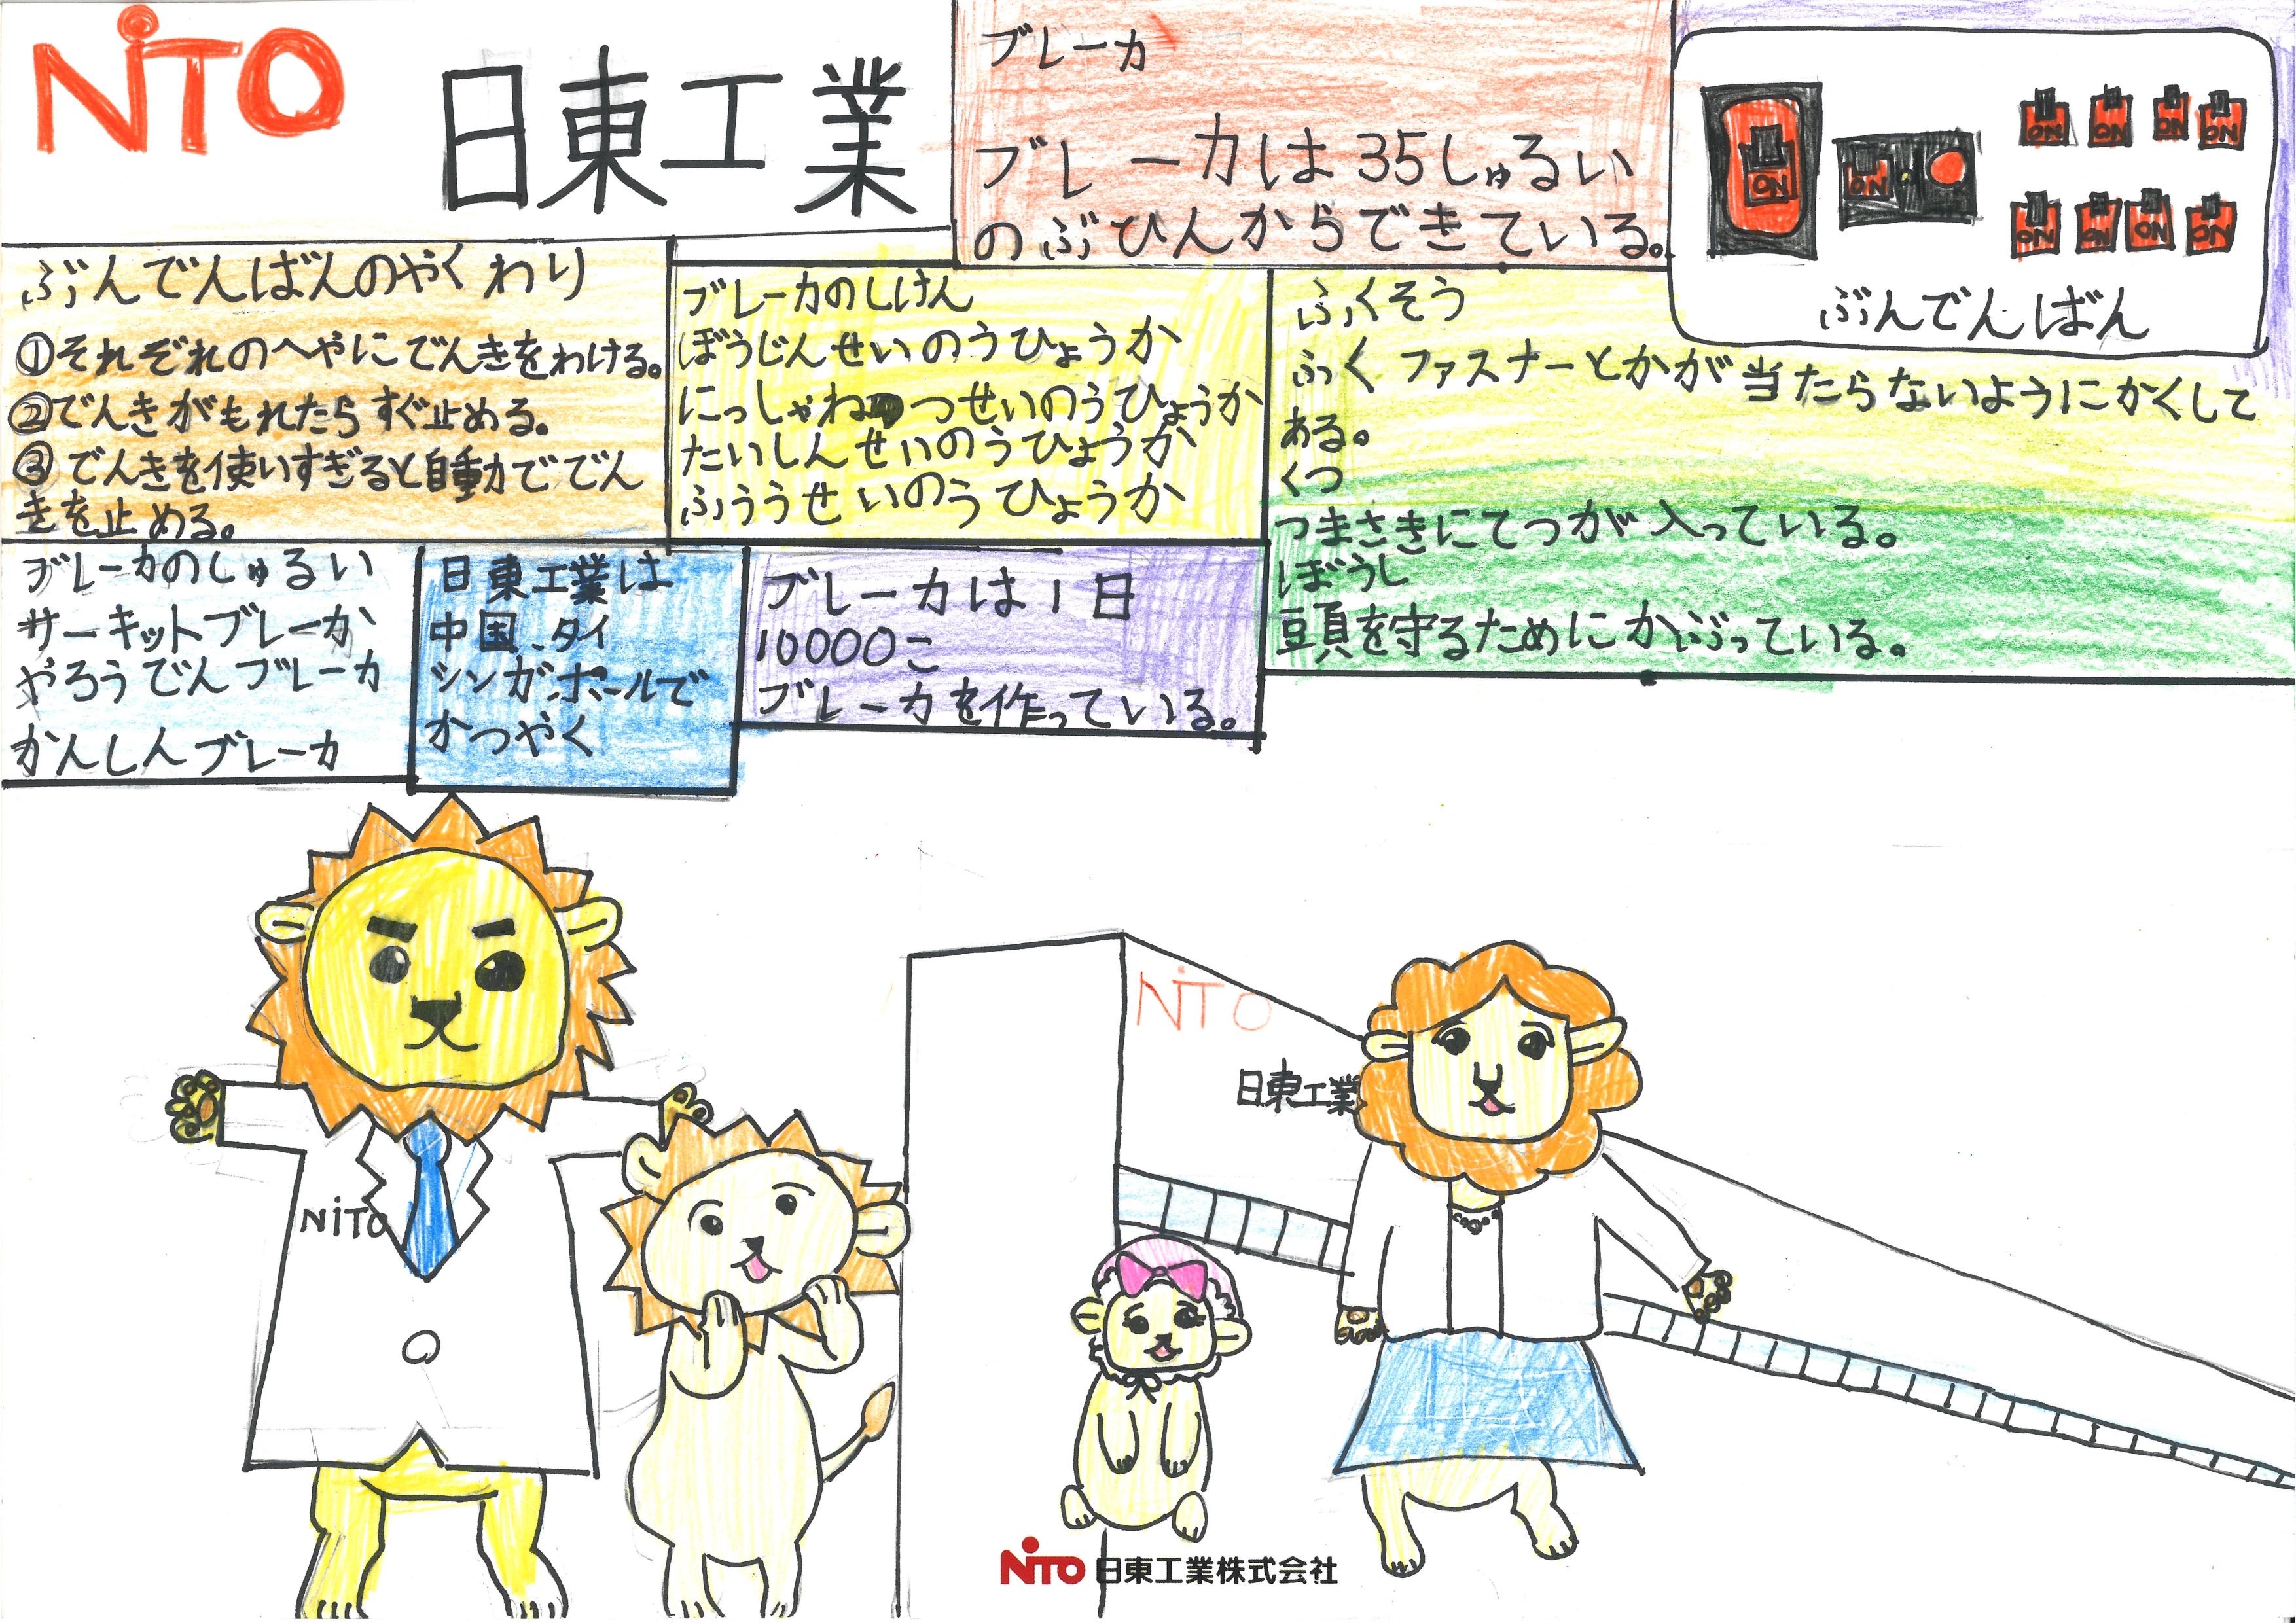 NiTO
日東工業
ブレーカ
ブレーカは35しゅるい
のぶひんからできている。
ON
ON
ON
ON
ON
ON
ON
ON
ON
ON
ぶんでんばん
ぶんでんばんのやくわり
①それぞれのへやにでんきをわける。
②でんきがもれたらすぐ止める。
③でんきを使いすぎると自動力ででん
きを止める。
ブレーカのしけん
ぼうじんせいのうひょうか
にっしゃねつせいのうひょうか
たいしんせいのうひょうか
ふううせいのうひょうか
ふくそう
ふくファスナーとかが当たらないようにかくして
ある。
くつ
つまさきにてつが入っている。
ぼうし
頭を守るためにかぶっている。
ブレーカのしゅるい
サーキットブレーカ
やろうでんブレーカ
かんしんブレーカ
日東工業は
中国、タイ
シンガポールで
かつやく
ブレーカは1日
10000こ
ブレーカを作っている。
NiTO
日東工業
NiTO
NiTO 日東工業株式会社